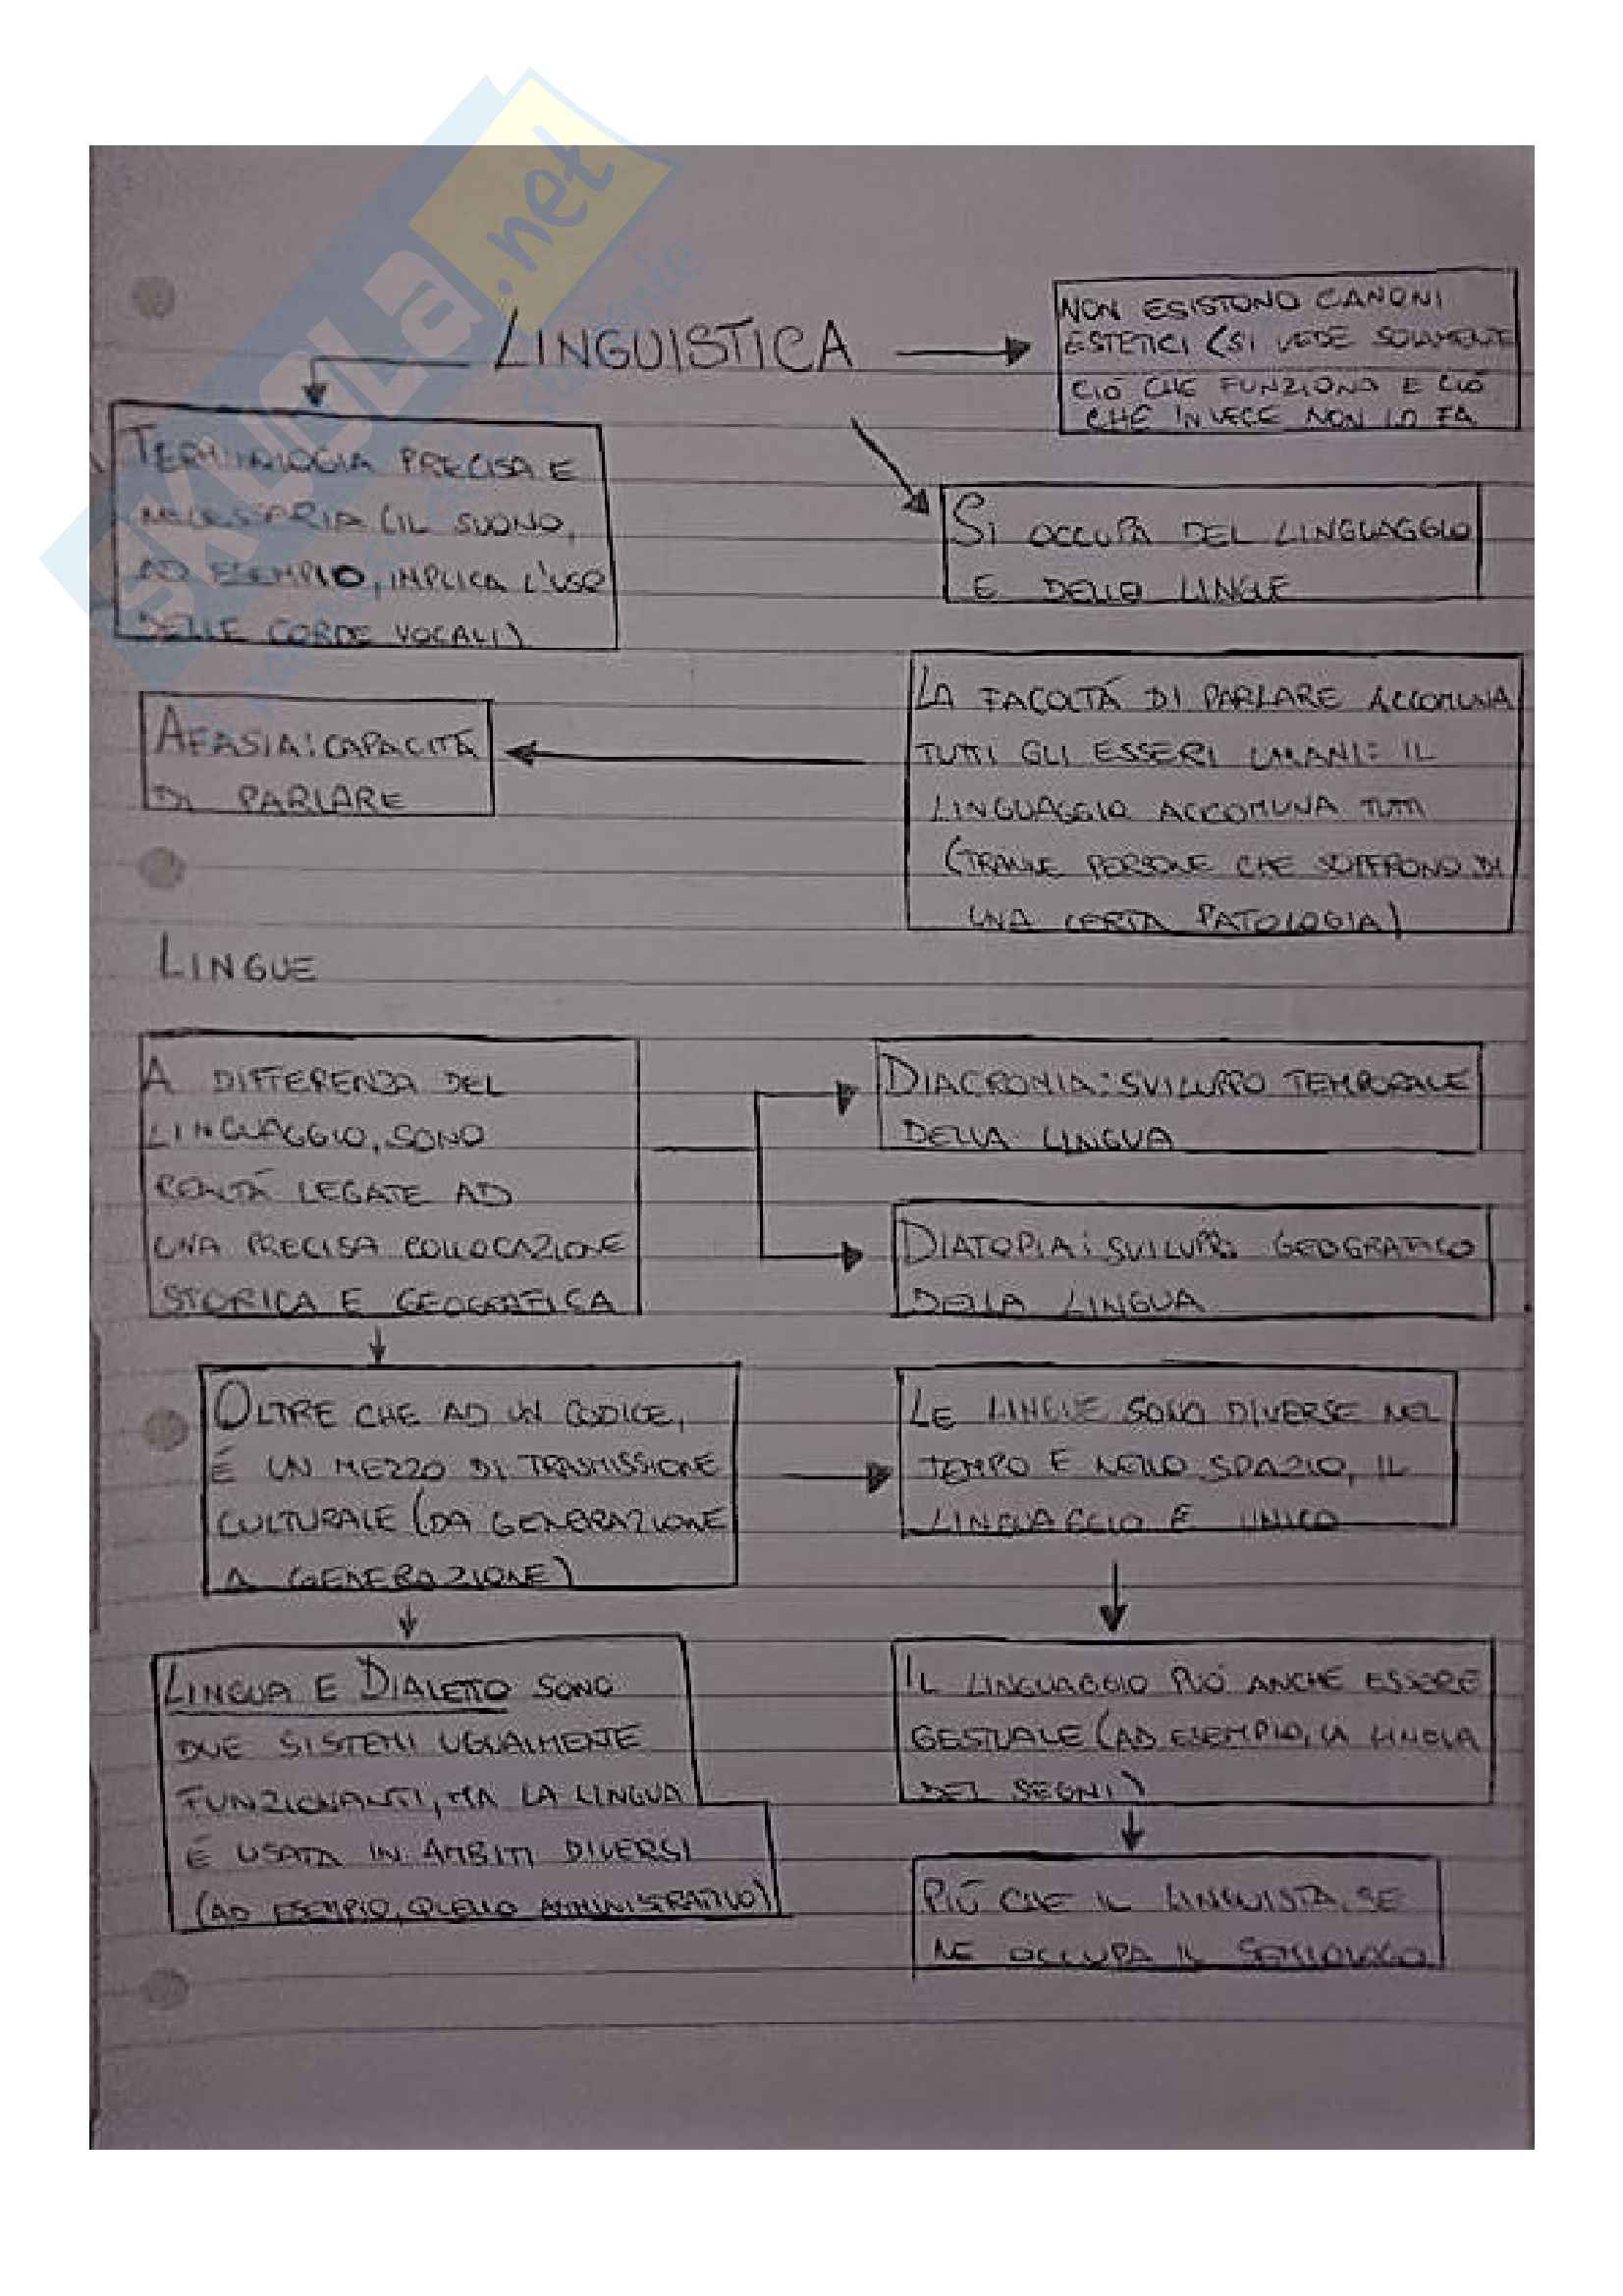 SKUOLA.net
LINGUISTICA
NON ESISTONO CANONI
ESTETICI (SI VEDE SOLAMENTE
CIÓ CHE FUNZIONA E CIÓ
CHE INVECE NON LO FA
TERMINOLOGIA PRECISA E
NECESSARIA (IL SUONO,
AD ESEMPIO, IMPLICA L'USO
DELLE CORDE VOCALI)
SI OCCUPA DEL LINGUAGGIO
E DELLE LINGUE
LA FACOLTÁ DI PARLARE ACCOMUNA
TUTTI GLI ESSERI UMANI: IL
LINGUAGGIO ACCOMUNA TUTTI
(TRANNE PERSONE CHE SOFFRONO DI
UNA CERTA PATOLOGIA)
AFASIA: CAPACITÁ
DI PARLARE
LINGUE
A DIFFERENZA DEL
LINGUAGGIO, SONO
REALTÁ LEGATE AD
UNA PRECISA COLLOCAZIONE
STORICA E GEOGRAFICA
DIACRONIA: SVILUPPO TEMPORALE
DELLA LINGUA
DIATOPIA: SVILUPPO GEOGRAFICO
DELLA LINGUA
OLTRE CHE AD UN CODICE,
É UN MEZZO DI TRASMISSIONE
CULTURALE (DA GENERAZIONE
A GENERAZIONE)
LE LINGUE SONO DIVERSE NEL
TEMPO E NELLO SPAZIO, IL
LINGUAGGIO É UNICO
LINGUA E DIALETTO SONO
DUE SISTEMI UGUALMENTE
FUNZIONANTI, MA LA LINGUA
É USATA IN AMBITI DIVERSI
(AD ESEMPIO, QUELLO AMMINISTRATIVO)
IL LINGUAGGIO PUÓ ANCHE ESSERE
GESTUALE (AD ESEMPIO, LA LINGUA
DEI SEGNI)
PIÚ CHE IL LINGUISTA, SE
NE OCCUPA IL SEMIOLOGO